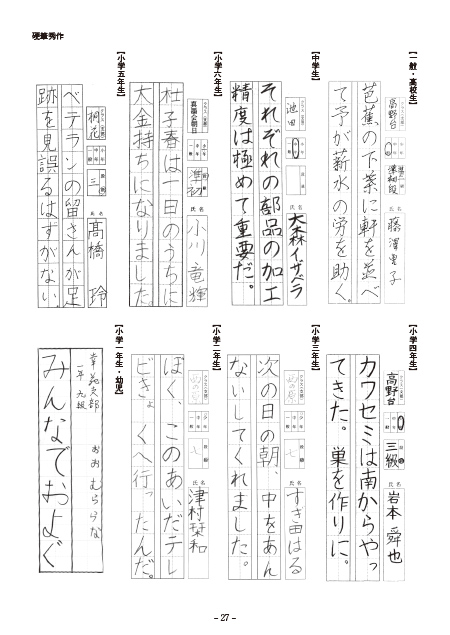 硬筆秀作
【一般・高校生】
芭蕉の下葉に軒を並べ
て予が薪水の労を助く。
高野台
氏名
【中学生】
それぞれの部品の加工
精度は極めて重要だ。
池田
氏名
大森イザベラ
【小学六年生】
杜子春は一日のうちに
大金持ちになりました
真篠会朝日
準初
氏名
小川竜輝
【小学五年生】
ベテランの留さんが足
跡を見誤るはずがない。
桐花
三
氏名
髙橋玲
【小学四年生】
カワセミは南からやっ
てきた。巣を作りに。
高野台
三級
氏名
岩本舜也
【小学三年生】
次の日の朝、中をあん
ないしてくれました。
七
氏名
すぎ田はる
【小学二年生】
ぼく、このあいだテレ
ビきょくへ行ったんだ。
氏名
津村栞和
【小学一年生・幼児】
みんなでおよぐ
幸苑支部
一年九級
おおむららな
- 27 -